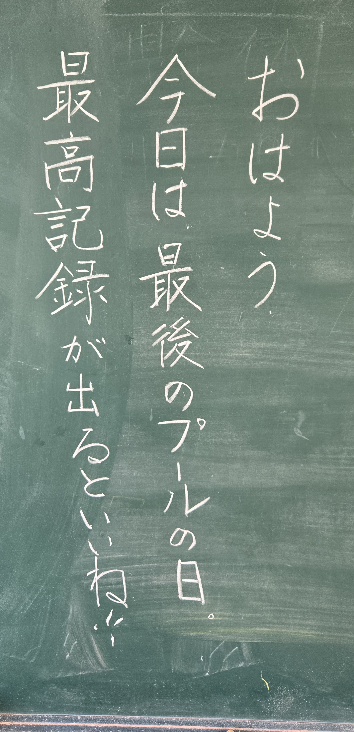 おはよう
今日は最後のプールの日。
最高記録が出るといいね